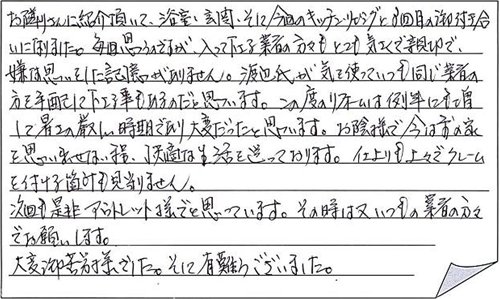 お隣りさんに紹介頂いて、浴室・玄関・そして今回のキッチンリビングと3回目の御付き合
いに成りました。毎回思うのですが、入って下さる業者の方々もとても気さくで親切で、
嫌な思いをした記憶がありません。源氏が気を使っていつも同じ業者の
方を手配して下さる事もあるのだと思います。この度のリフォームは例年にも増
して暑さの厳しい時期であり大変だったと思います。お陰様で今は前の家
を思い出せない程、快適な生活を送っております。仕上りも上々でクレーム
を付ける箇所も見当りません。
次回も是非アウトレット様でと思っています。その時は又いつもの業者の方々
でお願いします。
大変御苦労様でした。そして有難うございました。